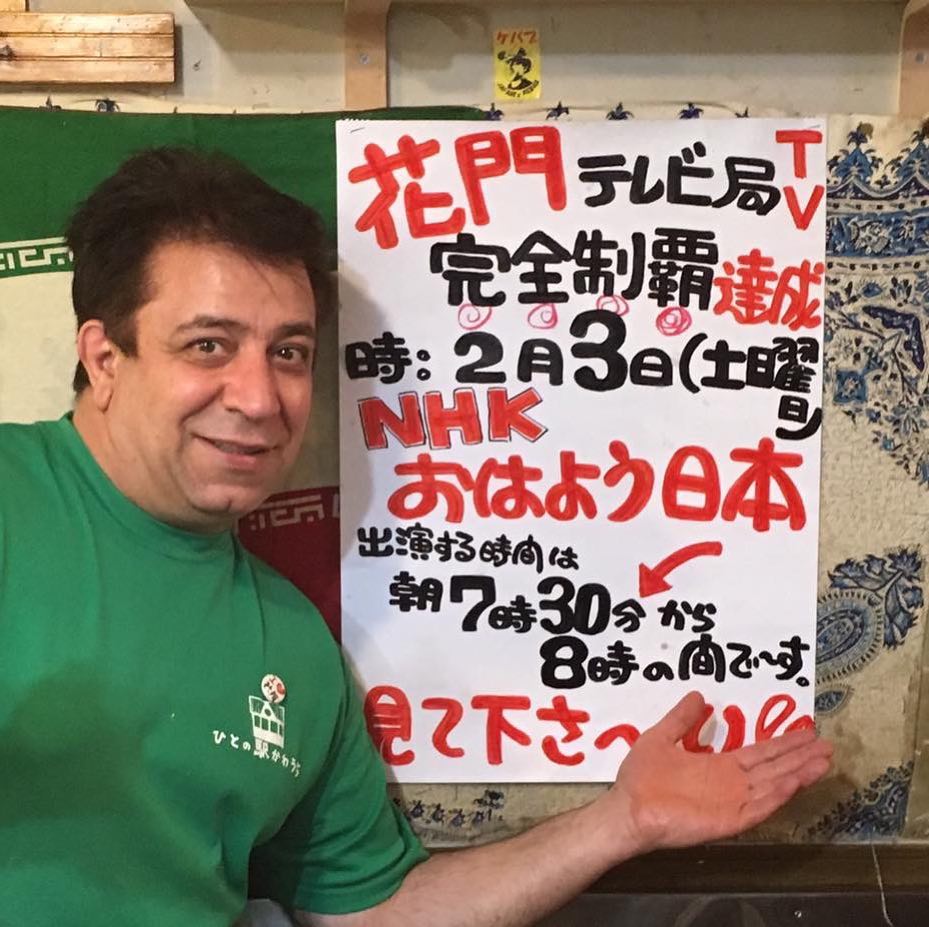 ケバブ
花門 テレビ局 TV
完全制覇達成
時：2月3日(土曜日)
NHK
おはよう日本
出演する時間は
朝7時30分から
8時の間で〜す。
見て下さ〜い
ひとの駅かわうち